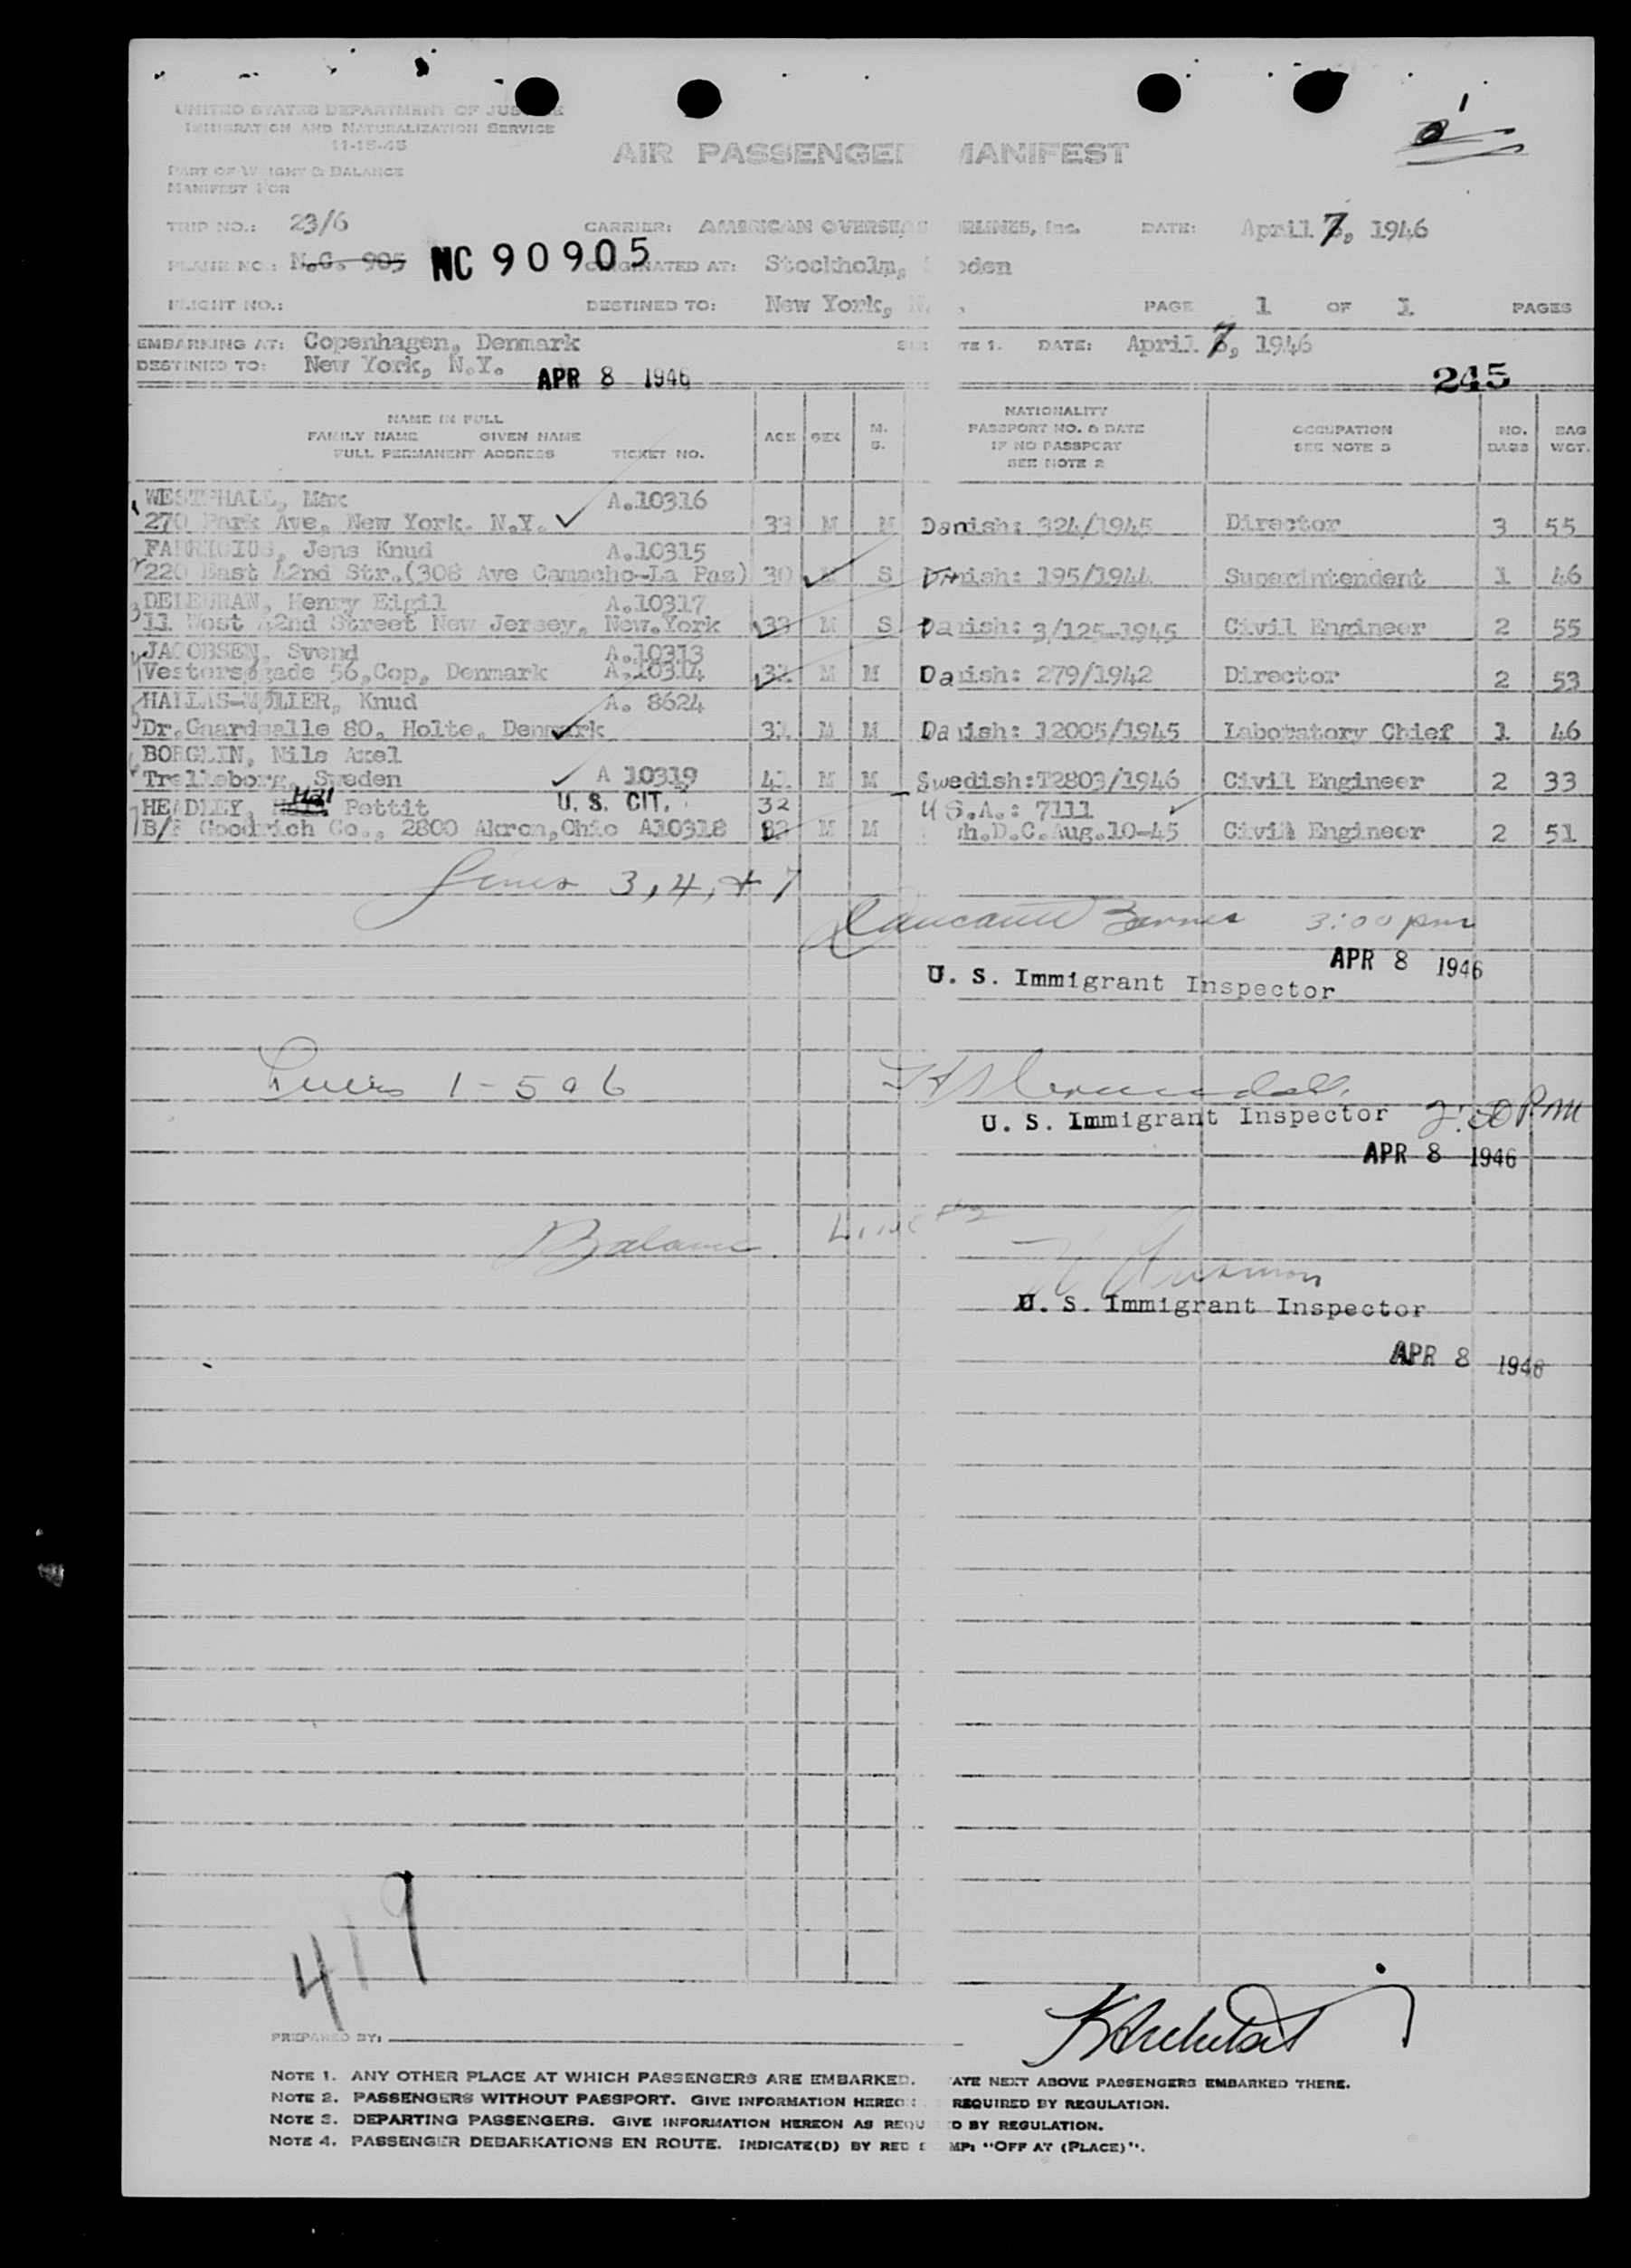 UNITED STATES DEPARTMENT OF JUSTICE
IMMIGRATION AND NATURALIZATION SERVICE
11-15-45
AIR PASSENGER MANIFEST
PART OF WEIGHT & BALANCE
MANIFEST FOR
TRIP NO.: 23/6 CARRIER: AMERICAN OVERSEAS AIRLINES, Inc. DATE: April 7, 1946
PLANE NO.: N.C. 905 NC 90905 ORIGINATED AT: Stockholm, Sweden
FLIGHT NO.: DESTINED TO: New York, PAGE 1 OF 1 PAGES
EMBARKING AT: Copenhagen, Denmark SEE NOTE 1. DATE: April 7, 1946
DESTINED TO: New York, N.Y. APR 8 1946 245
NAME IN FULL
FAMILY NAME GIVEN NAME
FULL PERMANENT ADDRESS TICKET NO.
AGE SEX M. S.
NATIONALITY
PASSPORT NO. & DATE
IF NO PASSPORT
SEE NOTE 2
OCCUPATION
SEE NOTE 3
NO. BAGS
BAG WGT.
1 WESTPHALL, Max A.10316
270 Park Ave, New York. N.Y. 33 M M Danish: 324/1945 Director 3 55
2 FABRICIUS, Jens Knud A.10315
220 East 42nd Str.(308 Ave Camacho-La Paz) 30 M S Danish: 195/1944 Superintendent 1 46
3 DELEURAN, Henry Eigil A.10317
11 West 42nd Street New Jersey, New.York 33 M S Danish: 3/125-1945 Civil Engineer 2 55
4 JACOBSEN, Svend A.10313
Vestersøgade 56,Cop, Denmark A.10314 32 M M Danish: 279/1942 Director 2 53
5 HALLAS-MØLLER, Knud A. 8624
Dr.Gnardsalle 80. Holte. Denmark 31 M M Danish: 12005/1945 Laboratory Chief 1 46
6 BORGLIN, Nils Axel
Trelleborg, Sweden A 10319 41 M M Swedish:T2803/1946 Civil Engineer 2 33
7 HEADLEY, Hal Pettit U. S. CIT. 32 U S.A.: 7111
B/F Goodrich Co., 2800 Akron,Ohio A10318 32 M M h.D.C.Aug.10-45 Civil Engineer 2 51
Lines 3, 4, + 7
Barnes 3:00 pm
APR 8 1946
U. S. Immigrant Inspector
Lines 1 - 5 a 6
U. S. Immigrant Inspector 2:50 P.M
APR 8 1946
Balance Line #2
U. S. Immigrant Inspector
APR 8 1946
419
PREPARED BY:
NOTE 1. ANY OTHER PLACE AT WHICH PASSENGERS ARE EMBARKED. STATE NEXT ABOVE PASSENGERS EMBARKED THERE.
NOTE 2. PASSENGERS WITHOUT PASSPORT. GIVE INFORMATION HEREON AS REQUIRED BY REGULATION.
NOTE 3. DEPARTING PASSENGERS. GIVE INFORMATION HEREON AS REQUIRED BY REGULATION.
NOTE 4. PASSENGER DEBARKATIONS EN ROUTE. INDICATE(D) BY RED STAMP: "OFF AT (PLACE)".